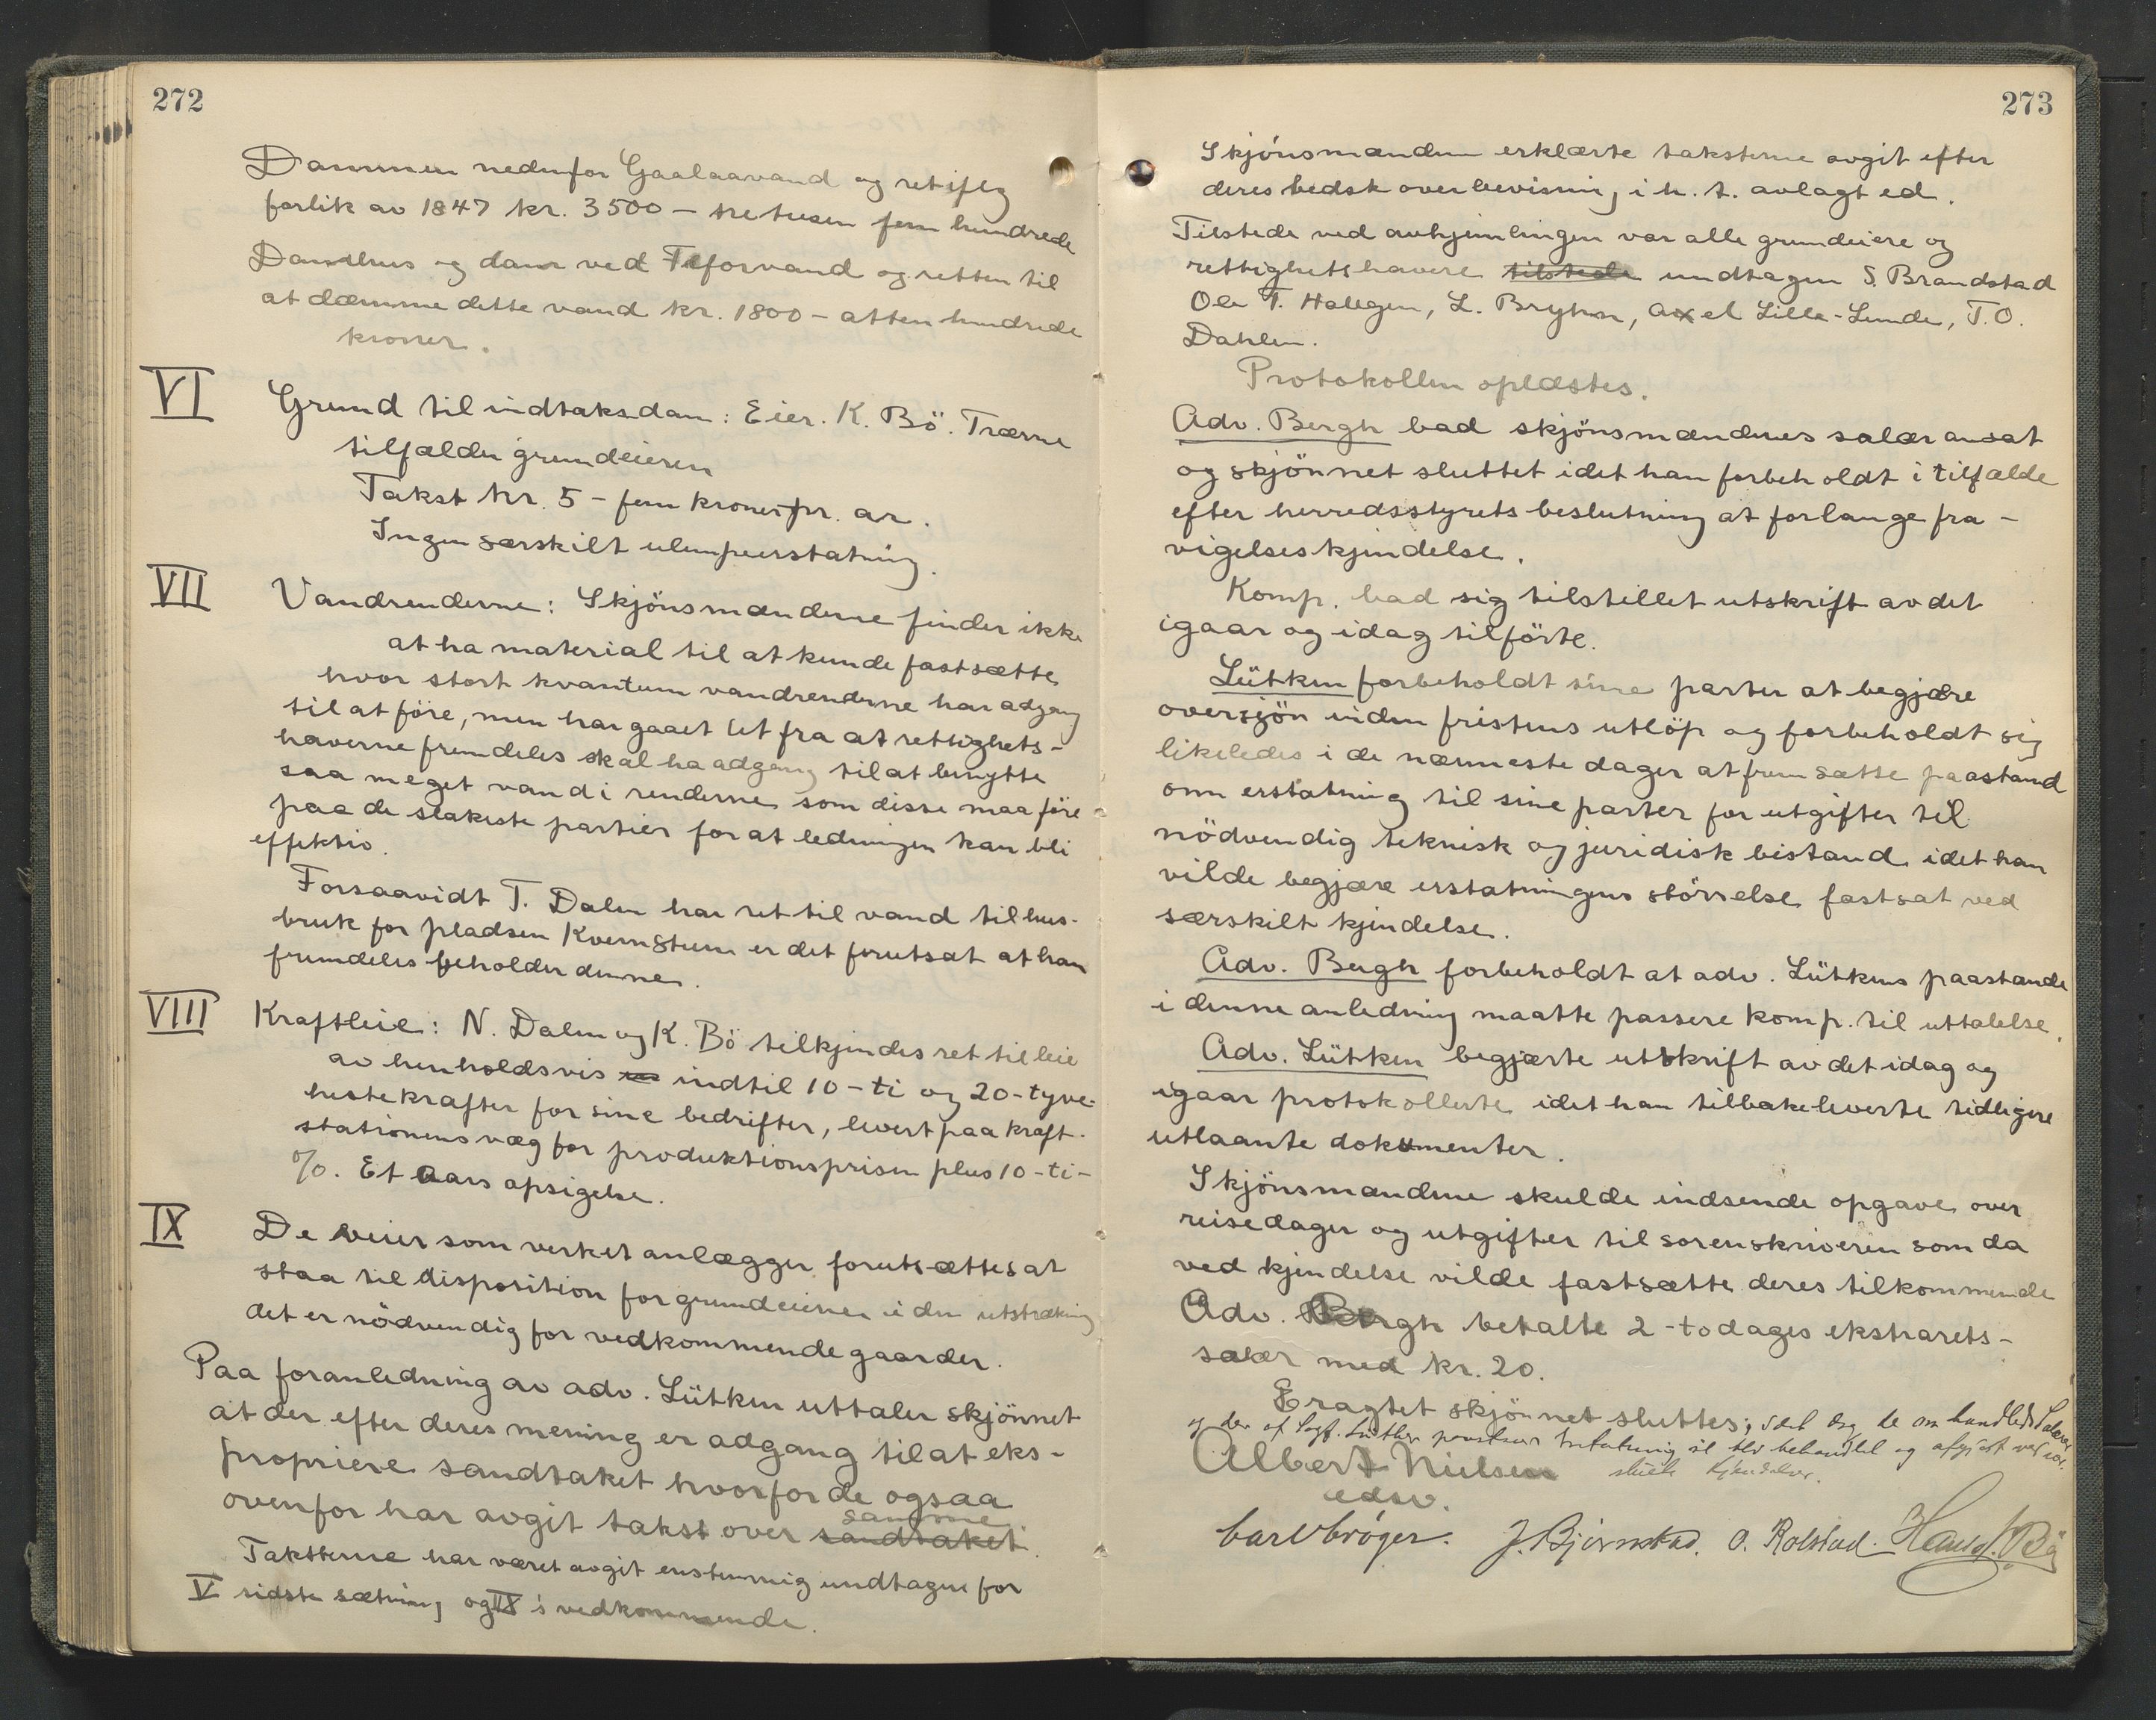 272
Dammen nedenfor Gaalaavand og ret iflg
forlik av 1847 kr. 3500 - tre tusen fem hundrede
Damhus og dam ved Tefforvand og retten til
at dæmme dette vand kr. 1800 - atten hundrede
kroner.
VI Grund til indtaksdam: Eier. K. Bö. Trærne
tilfælder grundeieren
Takst kr. 5 - fem kroner pr. ar.
Ingen særskilt ulempeerstatning.
VII Vandrenderne: Skjönsmænderne finder ikke
at ha material til at kunde fastsætte
hvor stort kvantum vandrenderne har adgang
til at före, men har gaaet ut fra at rettighets-
haverne fremdeles skal ha adgang til at benytte
saa meget vand i renderne som disse maa före
paa de slakeste partier for at ledningen kan bli
effektiv.
Forsaavidt T. Dalen har ret til vand til hus-
bruk for pladsen Kvernstuen er det forutsat at han
fremdeles beholder denne.
VIII Kraftleie: N. Dalen og K. Bö tilkjendes ret til leie
av henholdsvis indtil 10 - ti og 20 - tyve-
hestekrafter for sine bedrifter, levert paa kraft-
stationens væg for produktionsprisen plus 10 - ti -
%. Et aars opsigelse.
IX De veier som verket anlægger forutsættes at
staa til disposition for grundeierne i den utstrækning
det er nödvendig for vedkommende gaarder.
Paa foranledning av adv. Lütken uttaler skjönnet
at der efter deres mening er adgang til at eks-
propriere sandtaket hvorfor de ogsaa
samme
ovenfor har avgit takst over sandtaket.
Taksterne har været avgit enstemmig undtagen for
V sidste sætning og IX's vedkommende.
273
Skjönsmændene erklærte taksterne avgit efter
deres bedste overbevisning i h. t. avlagt ed.
Tilstede ved avhjemlingen var alle grundeiere og
rettighetshavere tilstede undtagen S. Brandstad
Ole T. Hallgen, L. Bryhn, Axel Lille-Lunde, T.O.
Dahlen.
Protokollen oplæstes.
Adv. Bergh bad skjönsmændenes salær ansat
og skjönnet sluttet idet han forbeholdt i tilfælde
efter herredsstyrets beslutning at forlange fra-
vigelseskjendelse.
Komp. bad sig tilstillet utskrift av det
igaar og idag tilförte.
Lütken forbeholdt sine parter at begjære
oversjön inden fristens utlöp og forbeholdt sig
likeledes i de nærmeste dager at fremsætte paastand
om erstatning til sine parter for utgifter til
nödvendig teknisk og juridisk bistand idet han
vilde begjære erstatningens störrelse fastsat ved
særskilt kjendelse.
Adv. Bergh forbeholdt at adv. Lütkens paastande
i denne anledning maatte passere komp. til uttalelse.
Adv. Lütken begjærte utskrift av det idag og
igaar protokollerte idet han tilbakeleverte tidligere
utlaante dokumenter.
Skjönsmændene skulde indsende opgave over
reisedager og utgifter til sorenskriveren som da
ved kjendelse vilde fastsætte deres tilkommende
Adv. Bergh betalte 2 - to dages ekstrarets-
salær med kr. 20.
Eragtet skjönnet sluttes;
og der af blir behandlet og afgjort ved sær-
skilt kjendelse.
Albert Nielsen
edsv.
Carl Bröger. J. Bjørnstad. O. Rolstad. Hans J. Bö